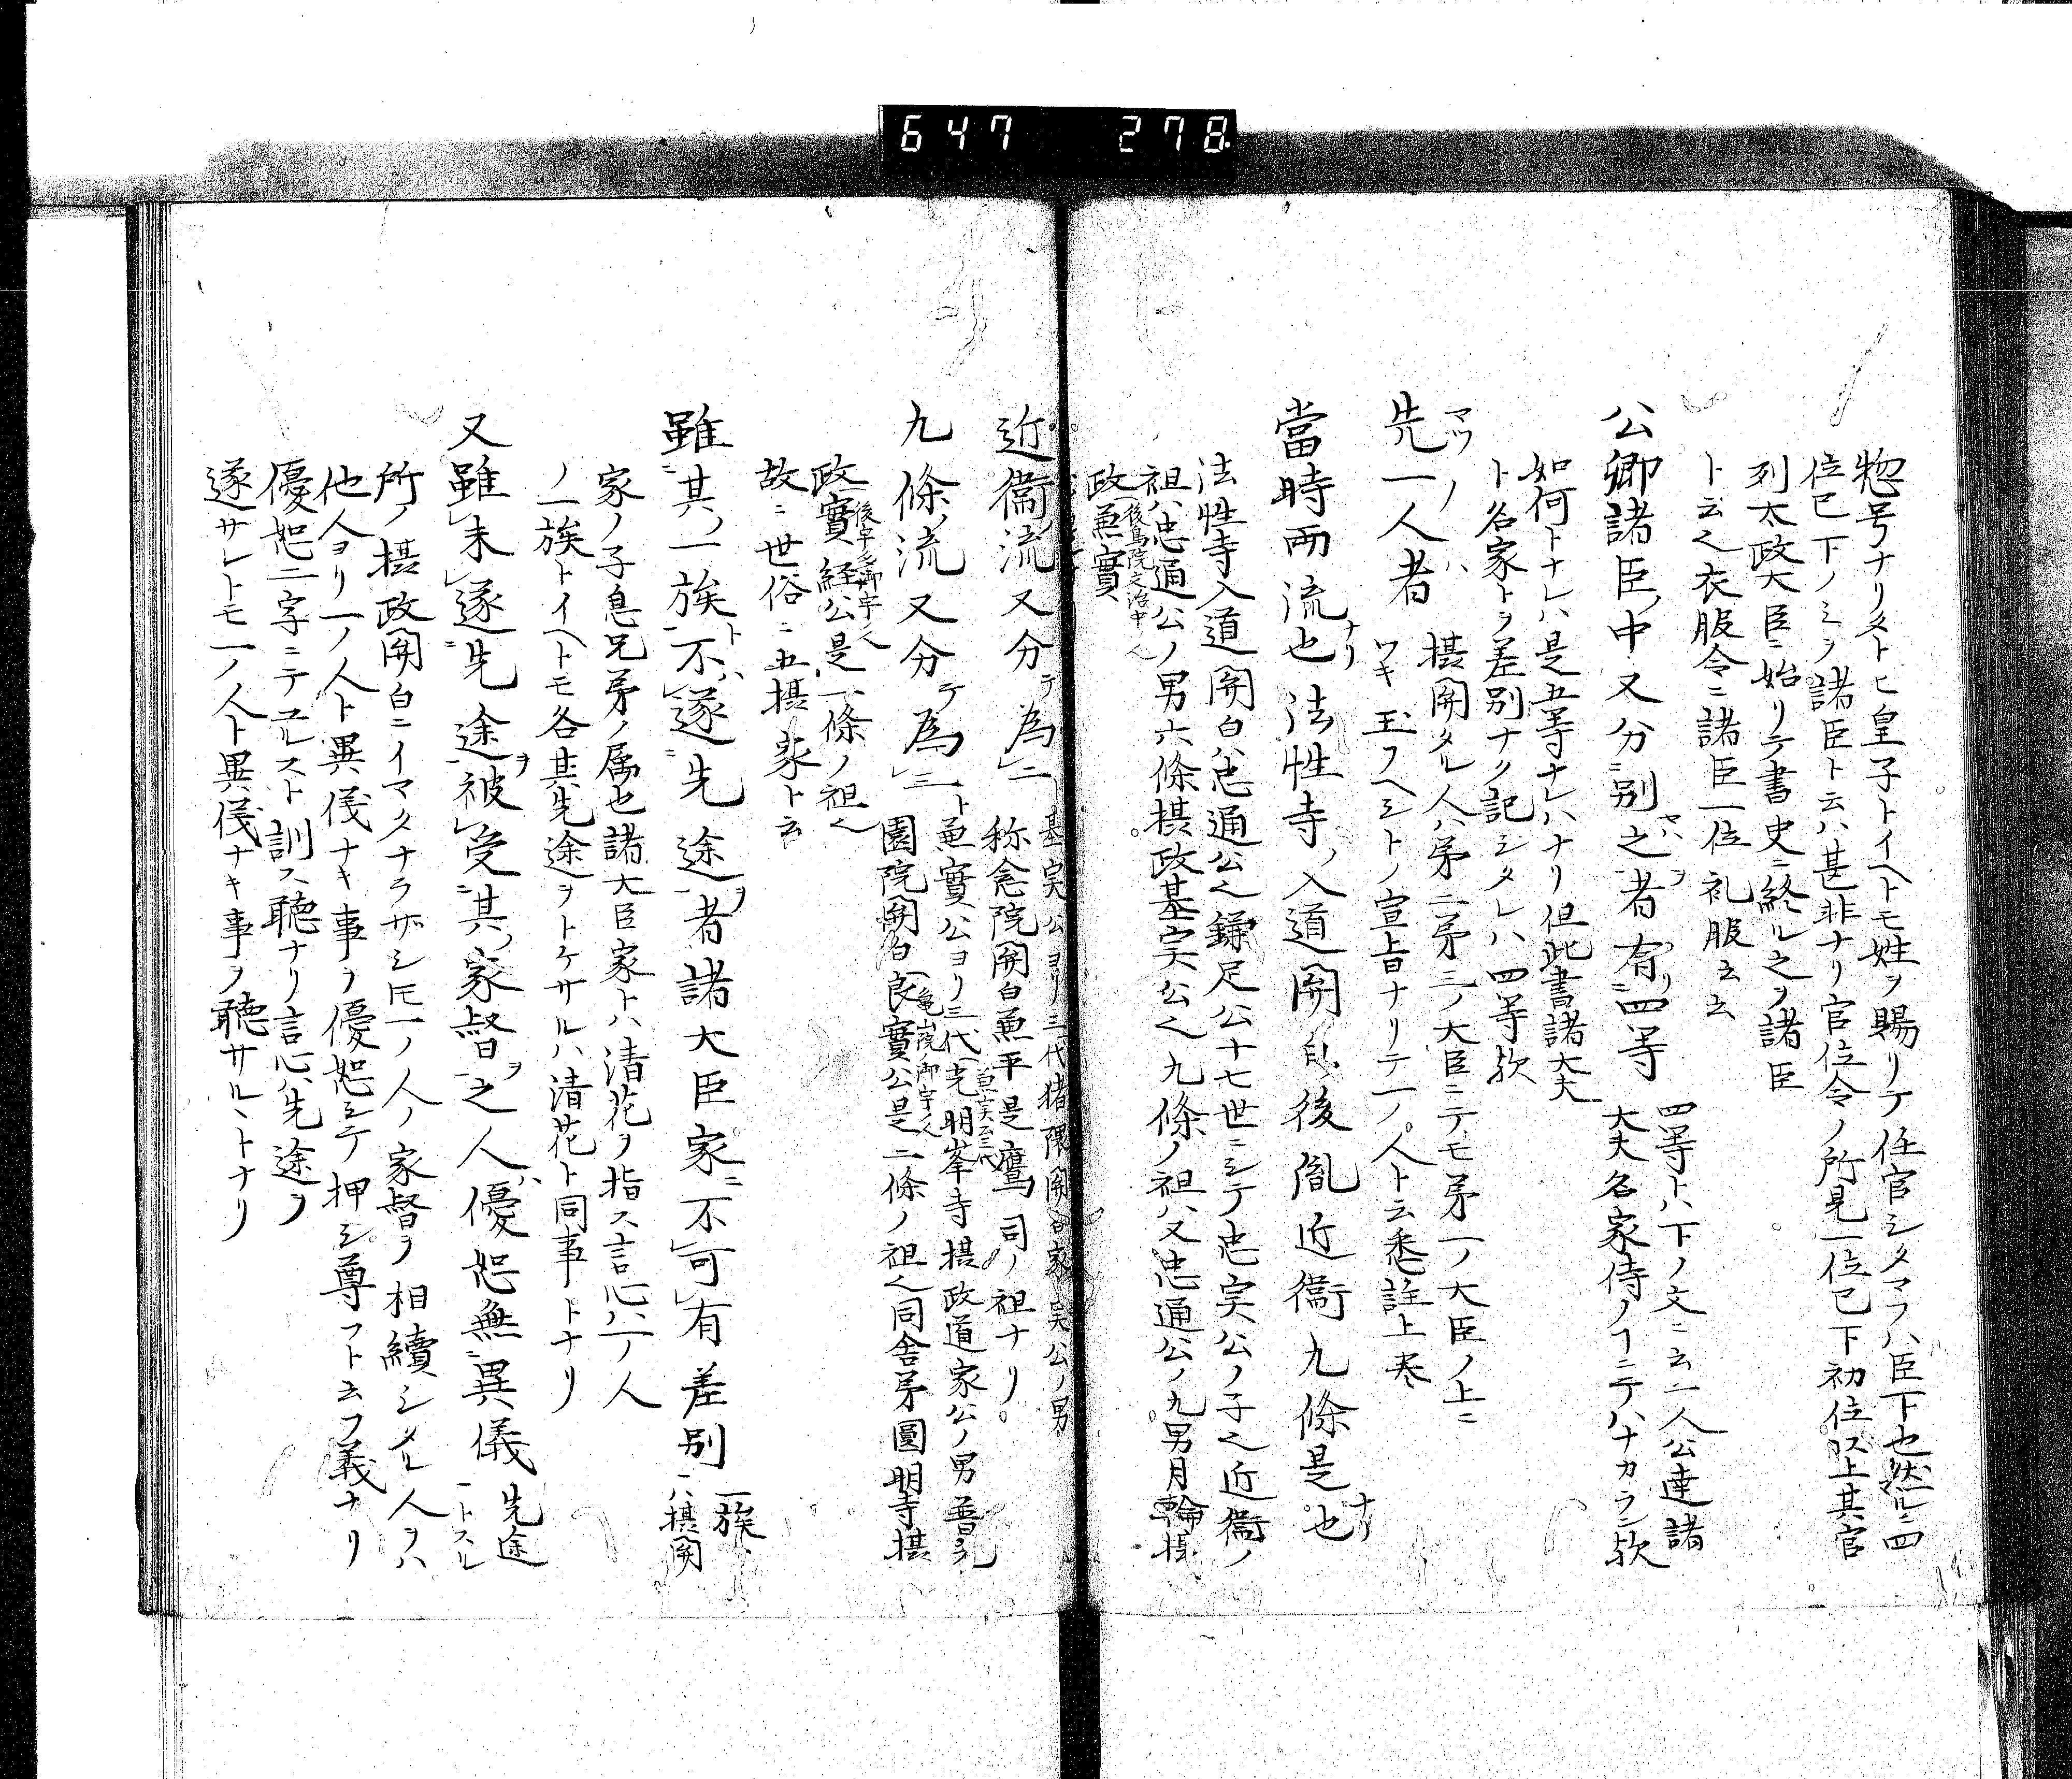 647 278
惣号ナリタトヒ皇子トイヘトモ姓ヲ賜リテ任官シタマフハ臣下也然ルニ四
位已下ノミヲ諸臣ト云ハ甚非ナリ官位令ノ所見一位已下初位以上其官
列太政大臣ニ始リテ書史ニ終ル之ヲ諸臣
ト云ヘ衣服令ニ諸臣一位礼服云云
公卿諸臣ノ中又分ニ別之ヲ者有リ四等 四等トハ下ノ文ニ云一人公達諸
大夫名家侍ノヿニテハナカランカ欤
如何トナレハ是五等ナレハナリ但此書諸大夫
ト名家トヲ差別ナク記シタレハ四等欤
先ツ一ノ人者ハ 摂関タル人ハ第二第三ノ大臣ニテモ第一ノ大臣ノ上ニ
ワキ玉フヘシトノ宣旨ナリテ一ノ人ト云悉註上巻
當時両流也ナリ法性寺ノ入道関白ノ後胤近衛九條是也ナリ
法性寺入道関白ハ忠通公也鎌足公十七世ニシテ忠実公ノ子也近衛ノ
祖ハ忠通公ノ男六條摂政基実公也九條ノ祖ハ又忠通公ノ九男月輪摂
政兼實後鳥院文治中ノ人
近衛ノ流又分テ為二ト 基実公ヨリ三代猪隈関白家実公ノ男
称念院関白兼平是鷹司ノ祖ナリ
九條ノ流又分テ為三ト 兼實公ヨリ三代光明峯寺摂政道家公ノ男普光
園院関白良實公亀山院御宇人是二條ノ祖也同舎弟圓明寺摂
政實経公後宇多御宇人是一條ノ祖也
故ニ世俗ニ五摂家ト云
雖其ノ一族ト不遂先途ヲ者ハ諸大臣家ニ不可有差別 一族ハ
摂関
家ノ子息兄弟ノ属也諸大臣家トハ清花ヲ指ス言心ハ一ノ人
ノ一族トイヘトモ各其先途ヲトケサルハ清花ト同事トナリ
又雖未遂先途ヲ被受其ノ家督ヲ之人ハ優恕無異儀 先途
トスル
所ノ摂政関白ニイマタナラザシ𪜈一ノ人ノ家督ヲ相續シタル人ヲハ
他人ヨリ一ノ人ト異儀ナキ事ヲ優恕シテ押シ尊フト云フ義ナリ
優恕二字ニテユルスト訓ス聴ナリ言心ハ先途ヲ
遂サレトモ一ノ人ト異儀ナキ事ヲ聴サルヽトナリ